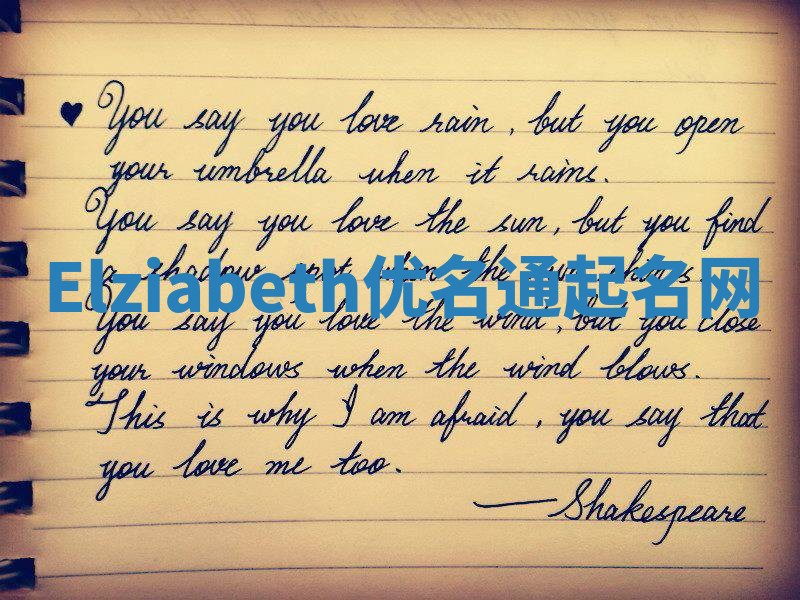 ♥ You say you love rain, but you open
your umbrella when it rains.
You say you love the sun, but you find
a shadow spot when the sun shines.
Elziabeth优名通起名网
You say you love the wind, but you close
your windows when the wind blows.
This is why I am afraid, you say that
you love me too.
—Shakespeare